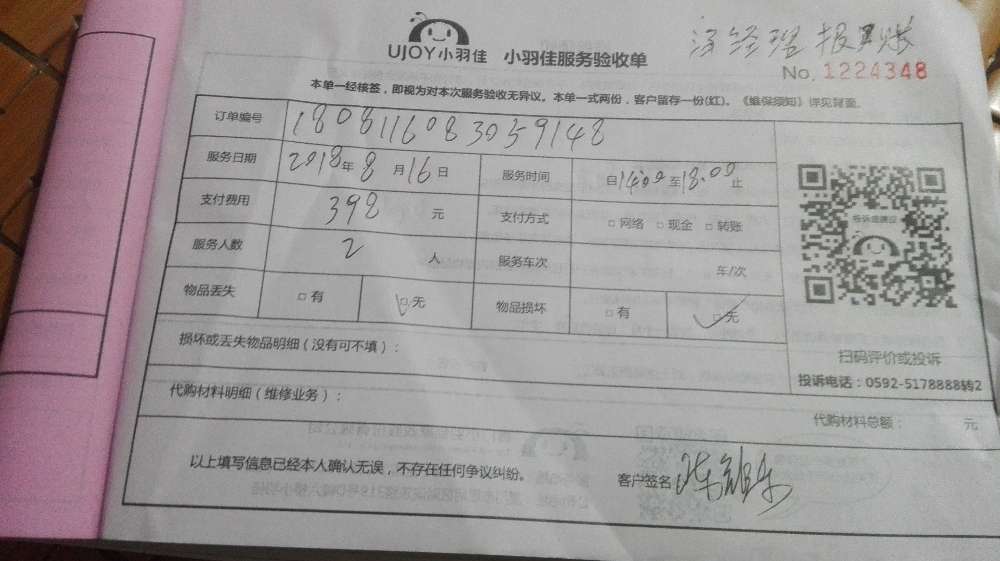 UJOY小羽佳 小羽佳服务验收单
经理报账
No. 1224348
本单一经核签，即视为对本次服务验收无异议。本单一式两份，客户留存一份(红)。《维保须知》详见背面。
订单编号 1808116083059148
服务日期 2018年8月16日 服务时间 自14:00至18:00止
支付费用 398元 支付方式 □网络 □现金 □转账
服务人数 2人 服务车次 车/次
物品丢失 □有 □无 物品损坏 □有 □无
投诉或建议
扫码评价或投诉
投诉电话：0592-5178888转2
损坏或丢失物品明细（没有可不填）：
代购材料明细（维修业务）：
代购材料总额： 元
以上填写信息已经本人确认无误，不存在任何争议纠纷。 客户签名